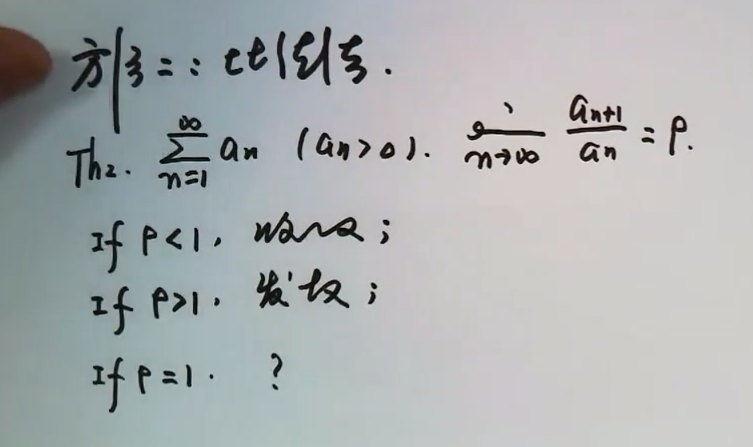 方法二:比值法.
Th2. ∑_{n=1}^{∞} a_n (a_n>0). lim_{n→∞} a_{n+1}/a_n = ρ.
If ρ<1, 收敛;
If ρ>1, 发散;
If ρ=1. ?